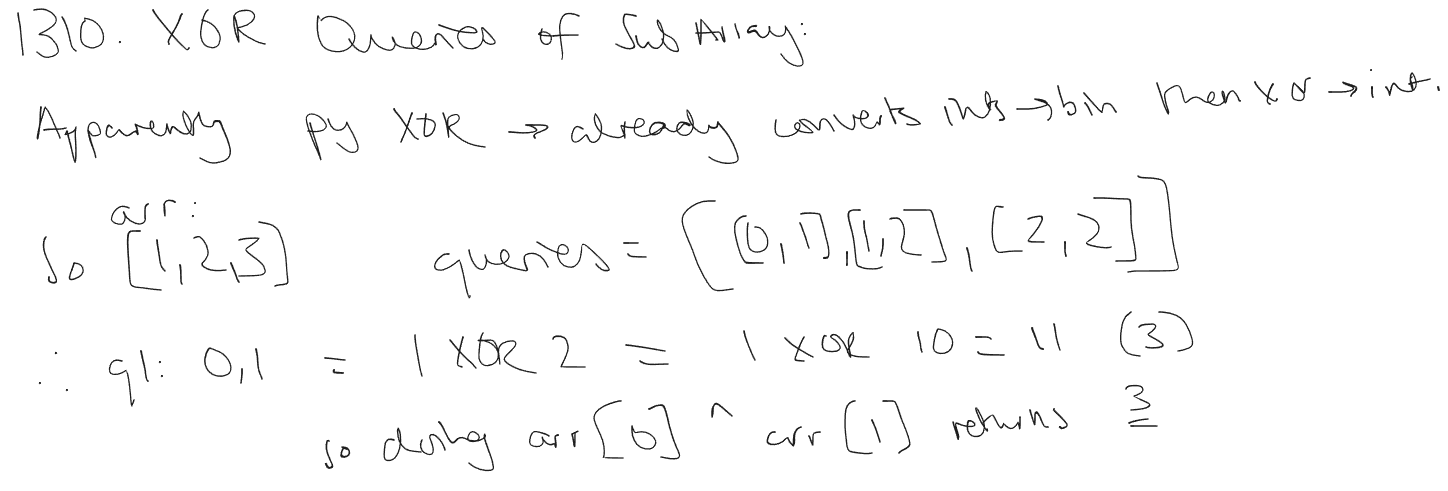 1310. XOR Queries of SubArray:
Apparently py XOR → already converts ints → bin then XOR → int.
arr:
So [1,2,3] queries = [[0,1],[1,2],[2,2]]
∴ q1: 0,1 = 1 XOR 2 = 1 XOR 10 = 11 (3)
so doing arr[0] ^ arr[1] returns 3